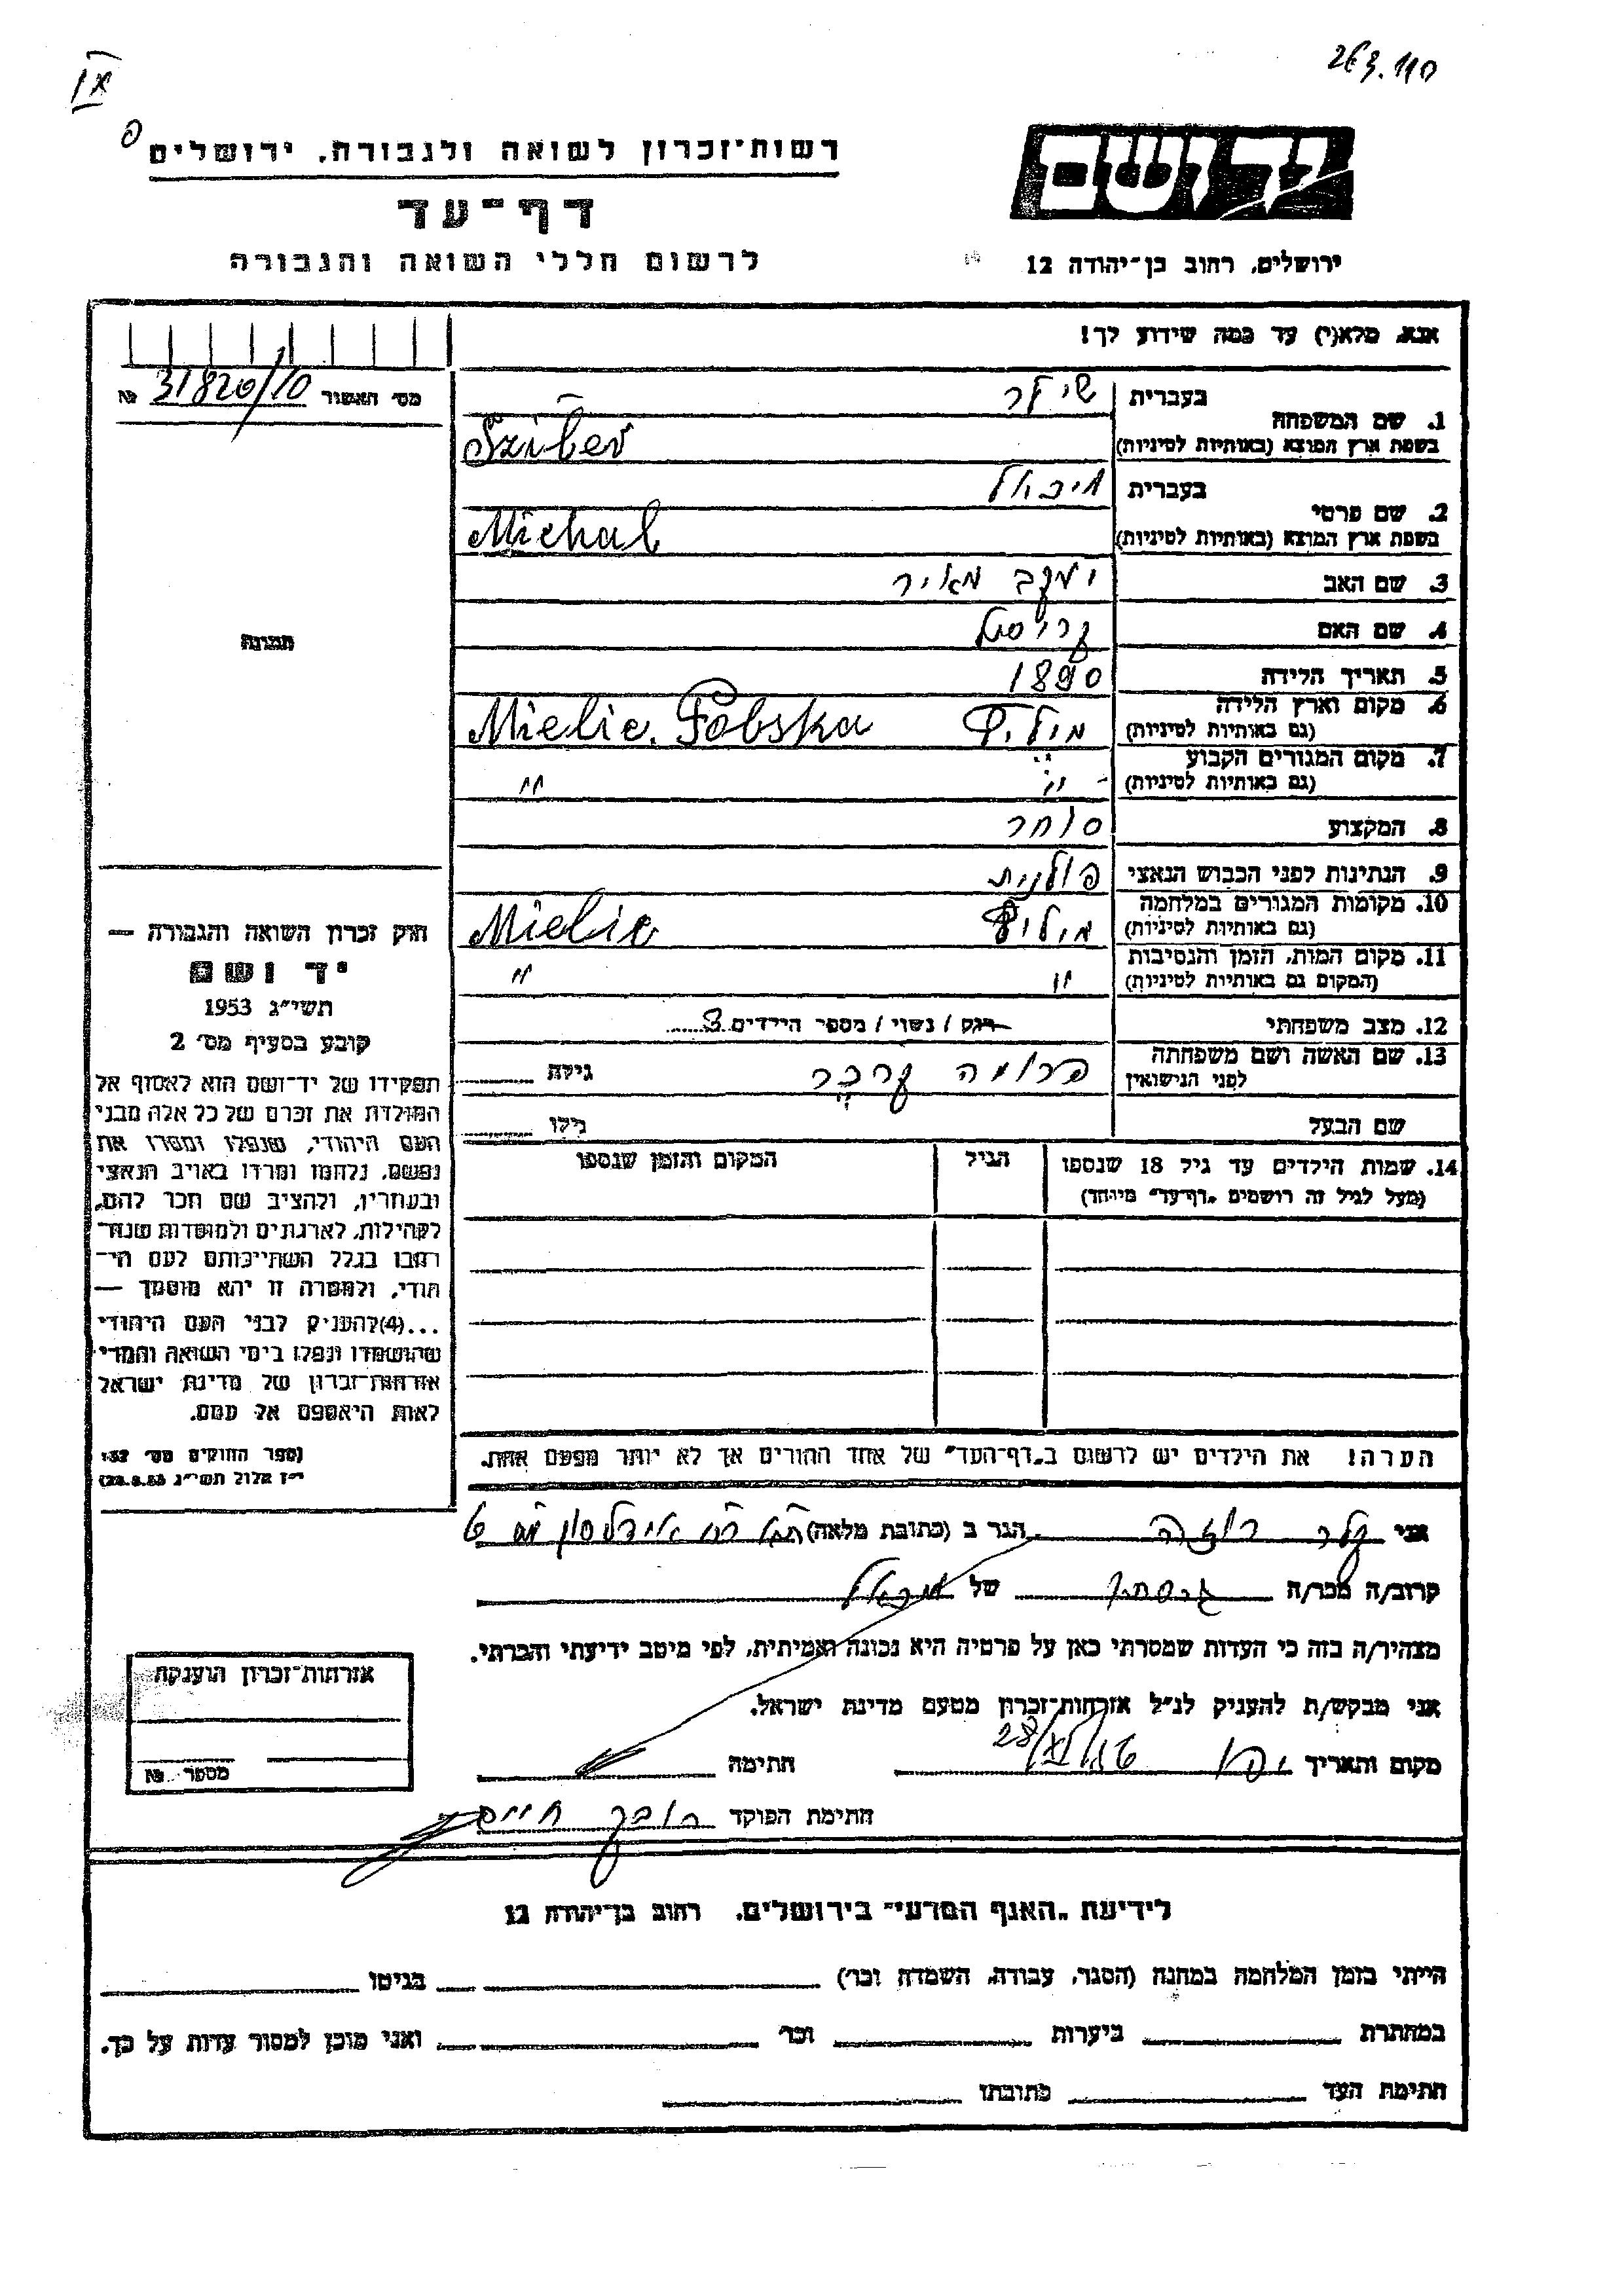 263.110
רשות־זכרון לשואה ולגבורה, ירושלים
דף־עד
לרשום חללי השואה והגבורה
יד ושם
ירושלים, רחוב בן־יהודה 12
אנא, מלא(י) עד כמה שידוע לך!
מס׳ האשור № 31820/10
1. שם המשפחה
בעברית שילר
בשפת ארץ המוצא (באותיות לטיניות) Sziler
2. שם פרטי
בעברית מיכאל
בשפת ארץ המוצא (באותיות לטיניות) Michal
3. שם האב יעקב מאיר
4. שם האם
5. תאריך הלידה 1890
6. מקום וארץ הלידה (גם באותיות לטיניות) מיליץ Mielic. Polska
7. מקום המגורים הקבוע (גם באותיות לטיניות) " "
8. המקצוע סוחר
9. הנתינות לפני הכבוש הנאצי פולנית
10. מקומות המגורים במלחמה (גם באותיות לטיניות) מיליץ Mielic
11. מקום המות, הזמן והנסיבות (המקום גם באותיות לטיניות) " "
12. מצב משפחתי רווק / נשוי / מספר הילדים 3
13. שם האשה ושם משפחתה לפני הנישואין פרומה גילה
שם הבעל גילו
14. שמות הילדים עד גיל 18 שנספו (מעל לגיל זה רושמים „דף־עד״ מיוחד)
הגיל
המקום והזמן שנספו
הערה! את הילדים יש לרשום ב„דף־העד״ של אחד ההורים אך לא יותר מפעם אחת.
תמונה
חוק זכרון השואה והגבורה —
יד ושם
תשי״ג 1953
קובע בסעיף מס׳ 2
תפקידו של יד־ושם הוא לאסוף אל
המולדת את זכרם של כל אלה מבני
העם היהודי, שנפלו ומסרו את
נפשם, נלחמו ומרדו באויב הנאצי
ובעוזריו, ולהציב שם וזכר להם,
לקהילות, לארגונים ולמוסדות שנח־
רבו בגלל השתייכותם לעם הי־
הודי, ולמטרה זו יהא מוסמך —
...(4)להעניק לבני העם היהודי
שהושמדו ונפלו בימי השואה והמרי
אזרחות־זכרון של מדינת ישראל
לאות היאספם אל עמם.
(ספר החוקים מס׳ 132
י״ז אלול תשי״ג 28.8.53)
אני רוזה הגר ב (כתובת מלאה)
קרוב/ה מכר/ה של מיכאל
מצהיר/ה בזה כי העדות שמסרתי כאן על פרטיה היא נכונה ואמיתית, לפי מיטב ידיעתי והכרתי.
אני מבקש/ת להעניק לנ״ל אזרחות־זכרון מטעם מדינת ישראל.
מקום ותאריך יפו 28/XI חתימה
חתימת הפוקד חיים
אזרחות־זכרון הוענקה
מספר №
לידיעת „האגף המדעי״ בירושלים, רחוב בן־יהודה 12
הייתי בזמן המלחמה במחנה (הסגר, עבודה, השמדה וכו׳) בגיטו
במחתרת ביערות וכו׳ ואני מוכן למסור עדות על כך.
חתימת העד כתובתו